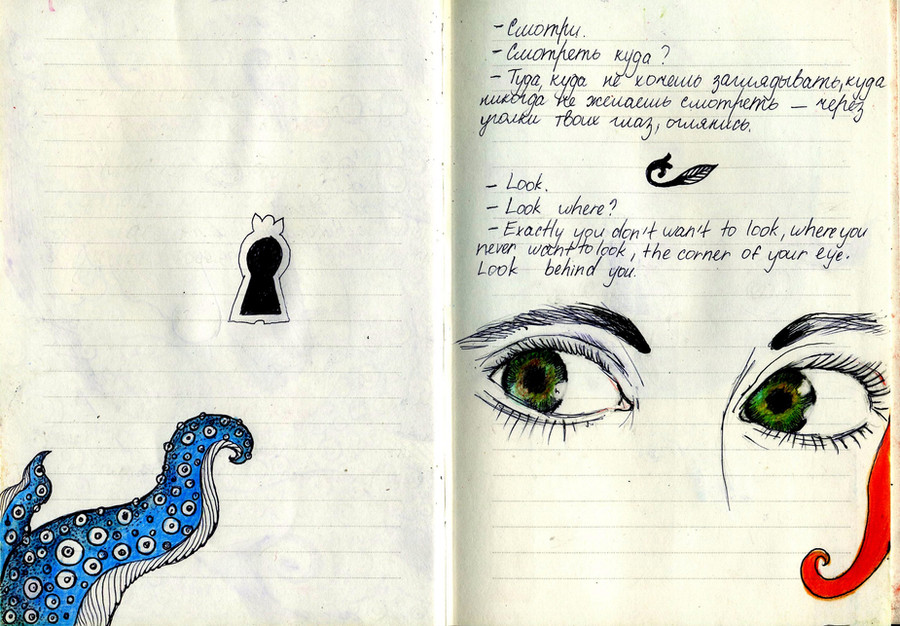 - Смотри.
- Смотреть куда?
- Туда, куда не хочешь заглядывать, куда
никогда не желаешь смотреть — через
уголки твоих глаз, оглянись.
- Look.
- Look where?
- Exactly you don't want to look, where you
never want to look, the corner of your eye.
Look behind you.